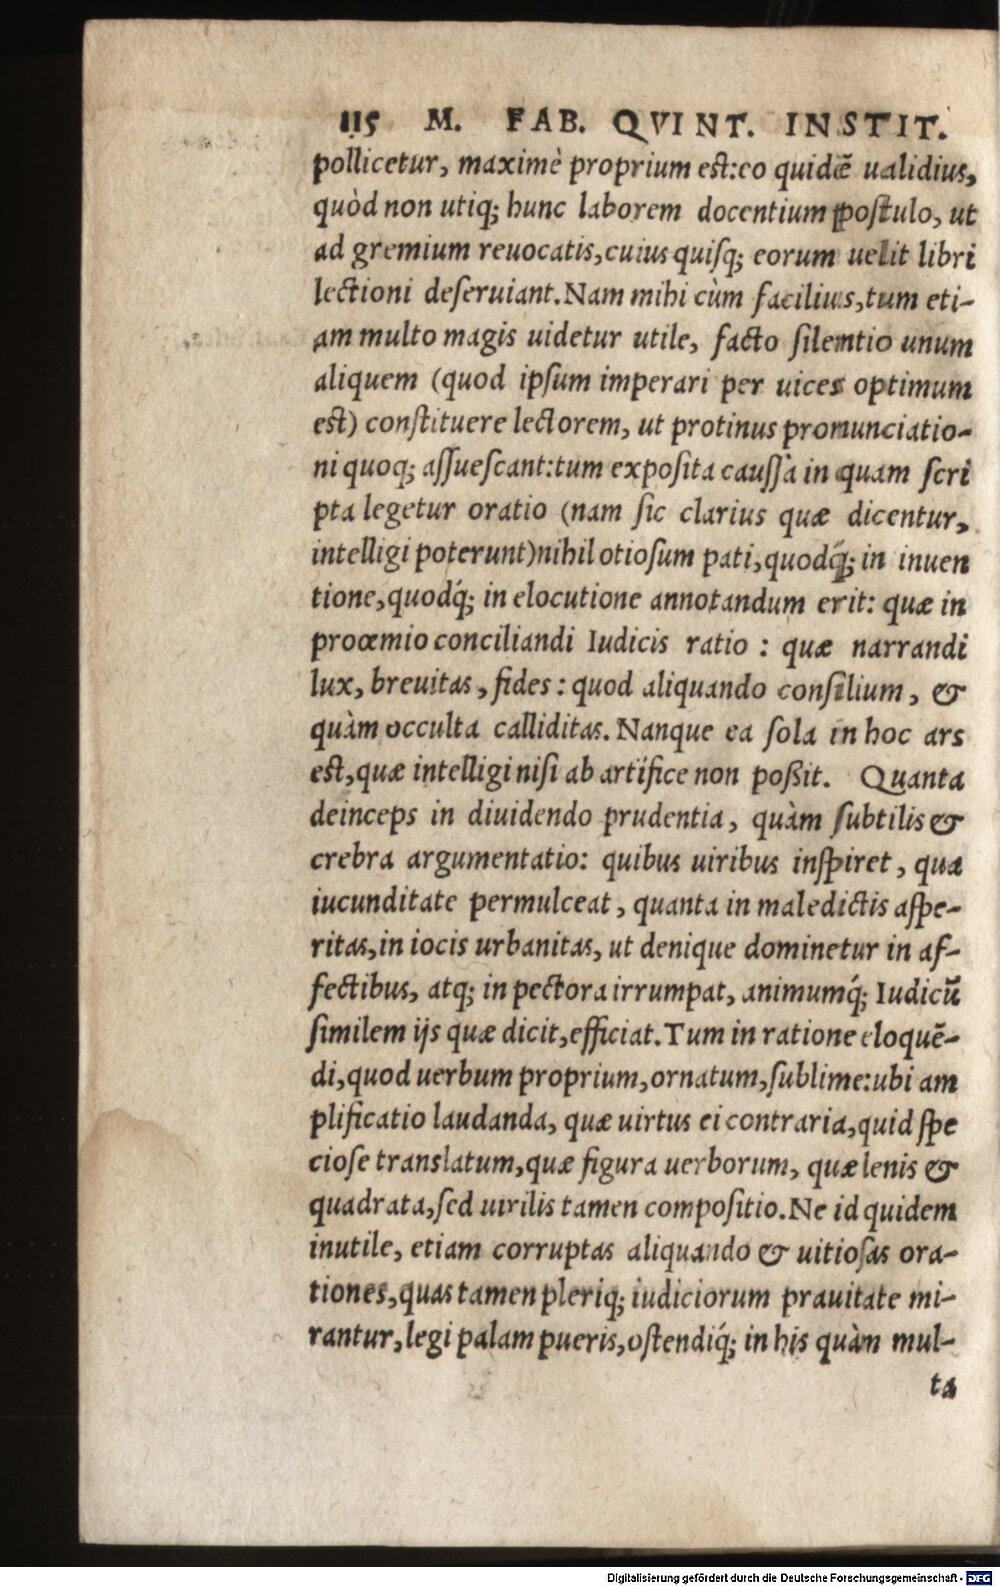 115 M. FAB. QVINT. INSTIT.
pollicetur, maximè proprium est:eo quidẽ ualidius,
quòd non utiq; hunc laborem docentium ꝓostulo, ut
ad gremium reuocatis,cuius quisq; eorum uelit libri
lectioni deseruiant.Nam mihi cùm facilius,tum eti-
am multo magis uidetur utile, facto silentio unum
aliquem (quod ipsum imperari per uices optimum
est) constituere lectorem, ut protinus pronunciatio-
ni quoq; assuescant:tum exposita caussa in quam scri
pta legetur oratio (nam sic clarius quæ dicentur,
intelligi poterunt)nihil otiosum pati,quodq́; in inuen
tione,quodq́; in elocutione annotandum erit: quæ in
proœmio conciliandi Iudicis ratio : quæ narrandi
lux, breuitas, fides : quod aliquando consilium, &
quàm occulta calliditas. Nanque ea sola in hoc ars
est,quæ intelligi nisi ab artifice non poßit. Quanta
deinceps in diuidendo prudentia, quàm subtilis &
crebra argumentatio: quibus uiribus inspiret, qua
iucunditate permulceat, quanta in maledictis aspe-
ritas,in iocis urbanitas, ut denique dominetur in af-
fectibus, atq; in pectora irrumpat, animumq́; Iudicũ
similem ijs quæ dicit,efficiat.Tum in ratione eloquẽ-
di,quod uerbum proprium,ornatum,sublime:ubi am
plificatio laudanda, quæ uirtus ei contraria,quid spe
ciose translatum,quæ figura uerborum, quæ lenis &
quadrata,sed uirilis tamen compositio.Ne id quidem
inutile, etiam corruptas aliquando & uitiosas ora-
tiones,quas tamen pleriq; iudiciorum prauitate mi-
rantur,legi palam pueris,ostendiq́; in his quàm mul-
ta
Digitalisierung gefördert durch die Deutsche Forschungsgemeinschaft - DFG